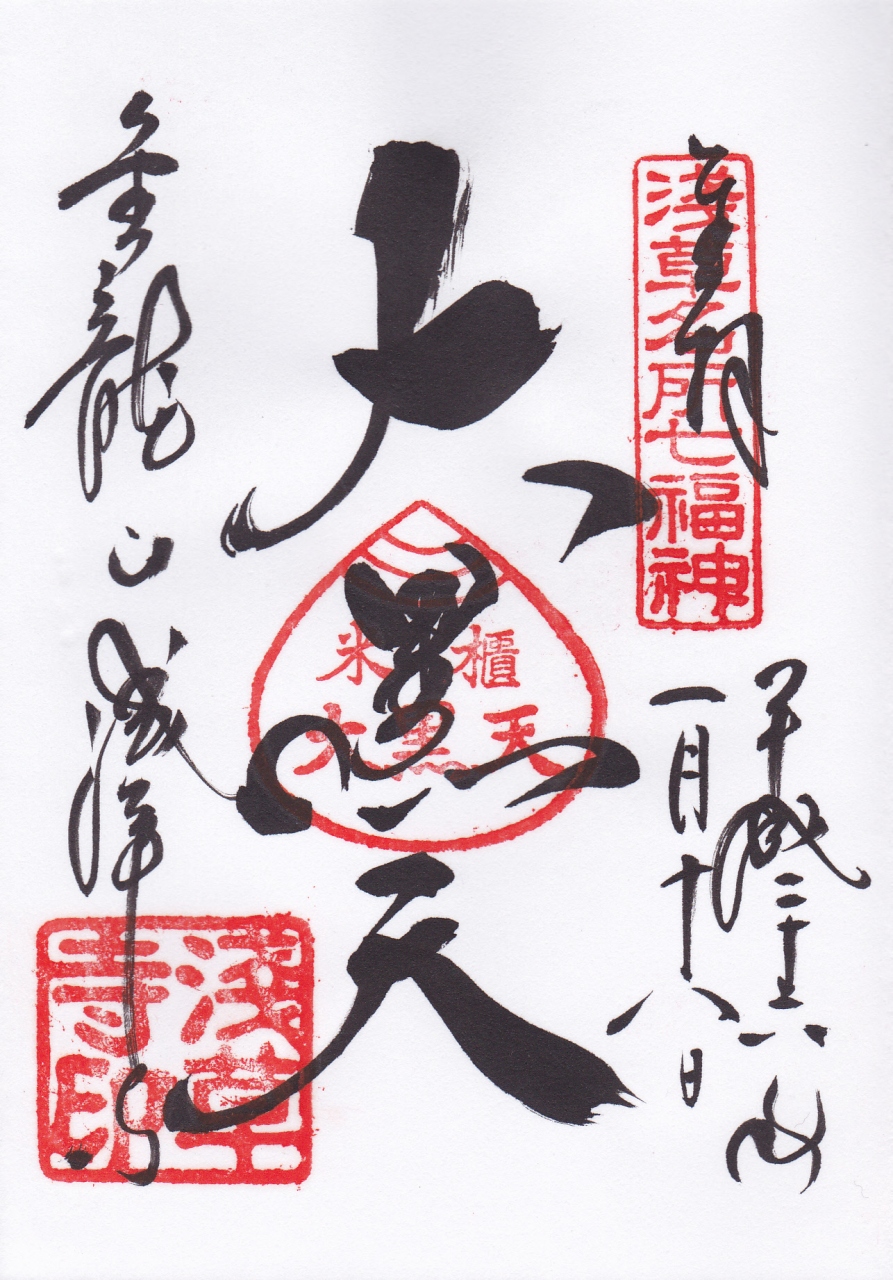 奉拝
淺草名所七福神
平成二十六年
一月十八日
大黒天
米櫃
大黒天
金龍山
浅草寺
淺草寺印